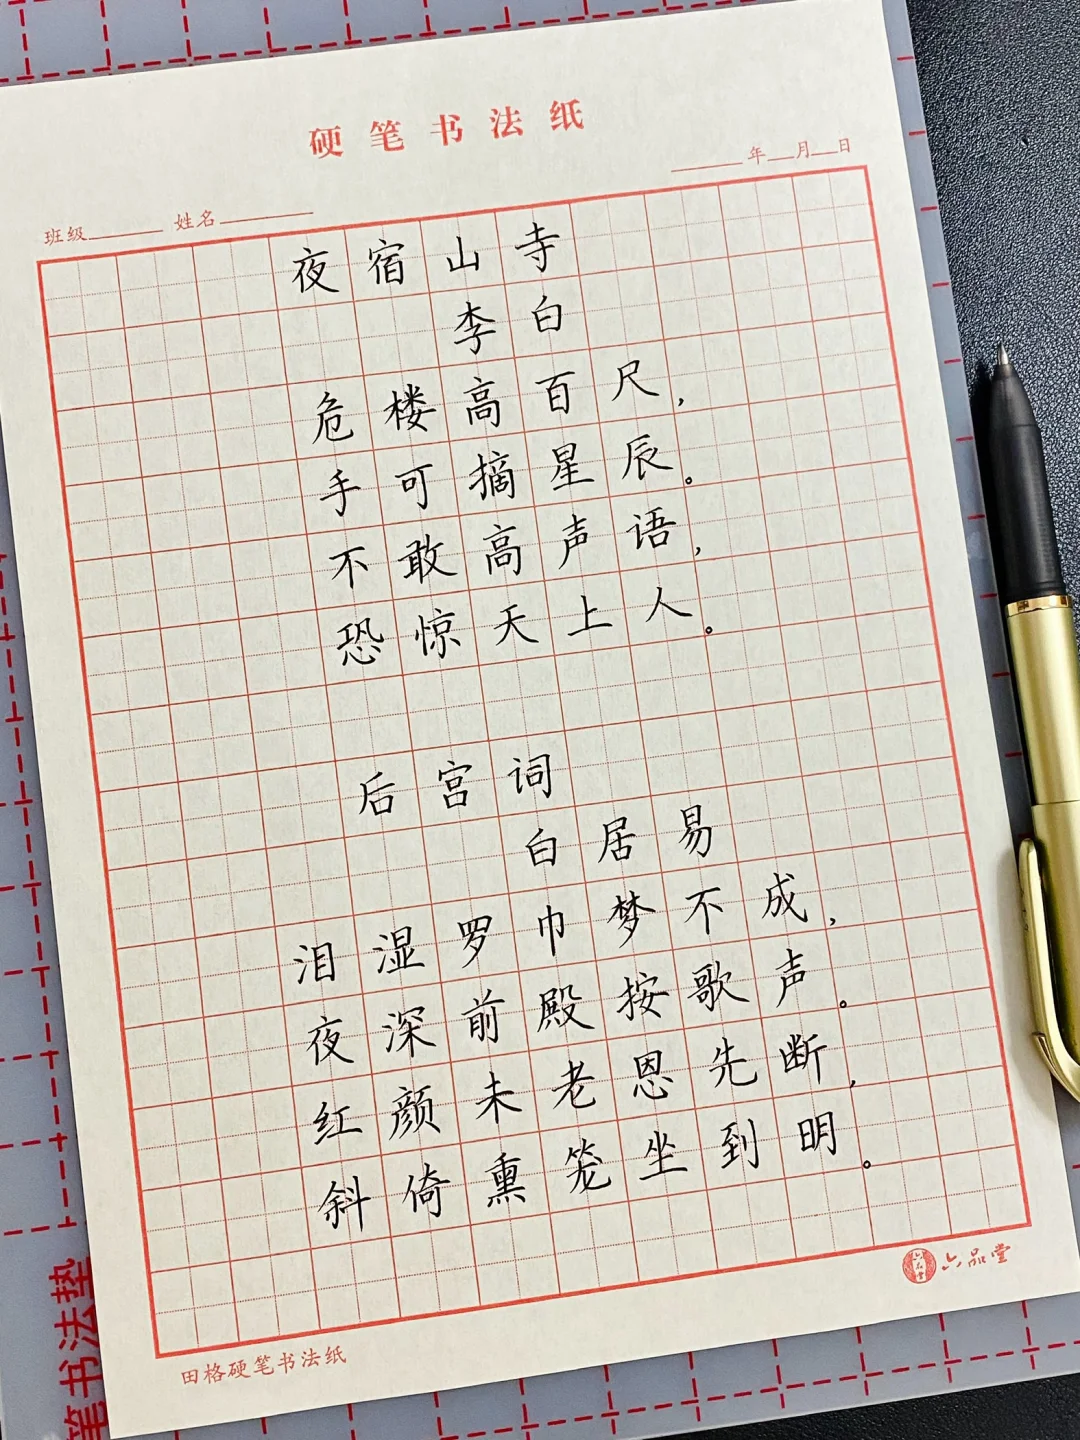 硬笔书法纸
年 月 日
班级 姓名
夜宿山寺
李白
危楼高百尺，
手可摘星辰。
不敢高声语，
恐惊天上人。
后宫词
白居易
泪湿罗巾梦不成，
夜深前殿按歌声。
红颜未老恩先断，
斜倚熏笼坐到明。
六品堂
六品堂
田格硬笔书法纸
笔书法垫